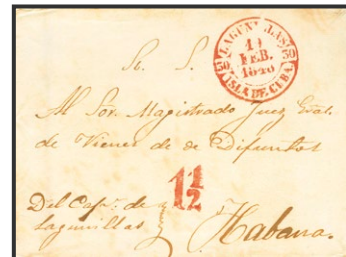 LAGUNILLAS
30 30
FEB.
ISLA DE CUBA
S. S.
Al Sor. Magistrado Juez Gral.
de Vienes de Difuntos
1 1/2
Del Capn. de
Lagunillas
Habana.